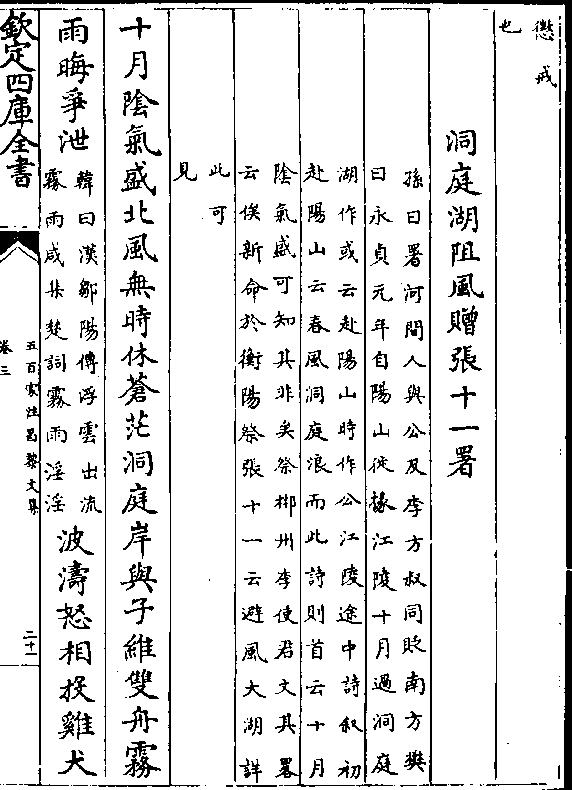 懲戒
也
洞庭湖阻風贈張十一署
孫曰署河間人與公及李方叔同貶南方樊
曰永貞元年自陽山徙掾江陵十月過洞庭
湖作或云赴陽山時作公江陵途中詩叙初
赴陽山云春風洞庭浪而此詩則首云十月
陰氣盛可知其非矣祭郴州李使君文其畧
云俟新命於衡陽祭張十一云避風大湖詳
此可
見
十月陰氣盛北風無時休蒼茫洞庭岸與子維雙舟霧
雨晦爭泄
韓曰漢鄒陽傳浮雲出流
霧雨咸集楚詞霧雨淫淫
波濤怒相投雞犬
欽定四庫全書
五百家注昌黎文集
卷三
二十